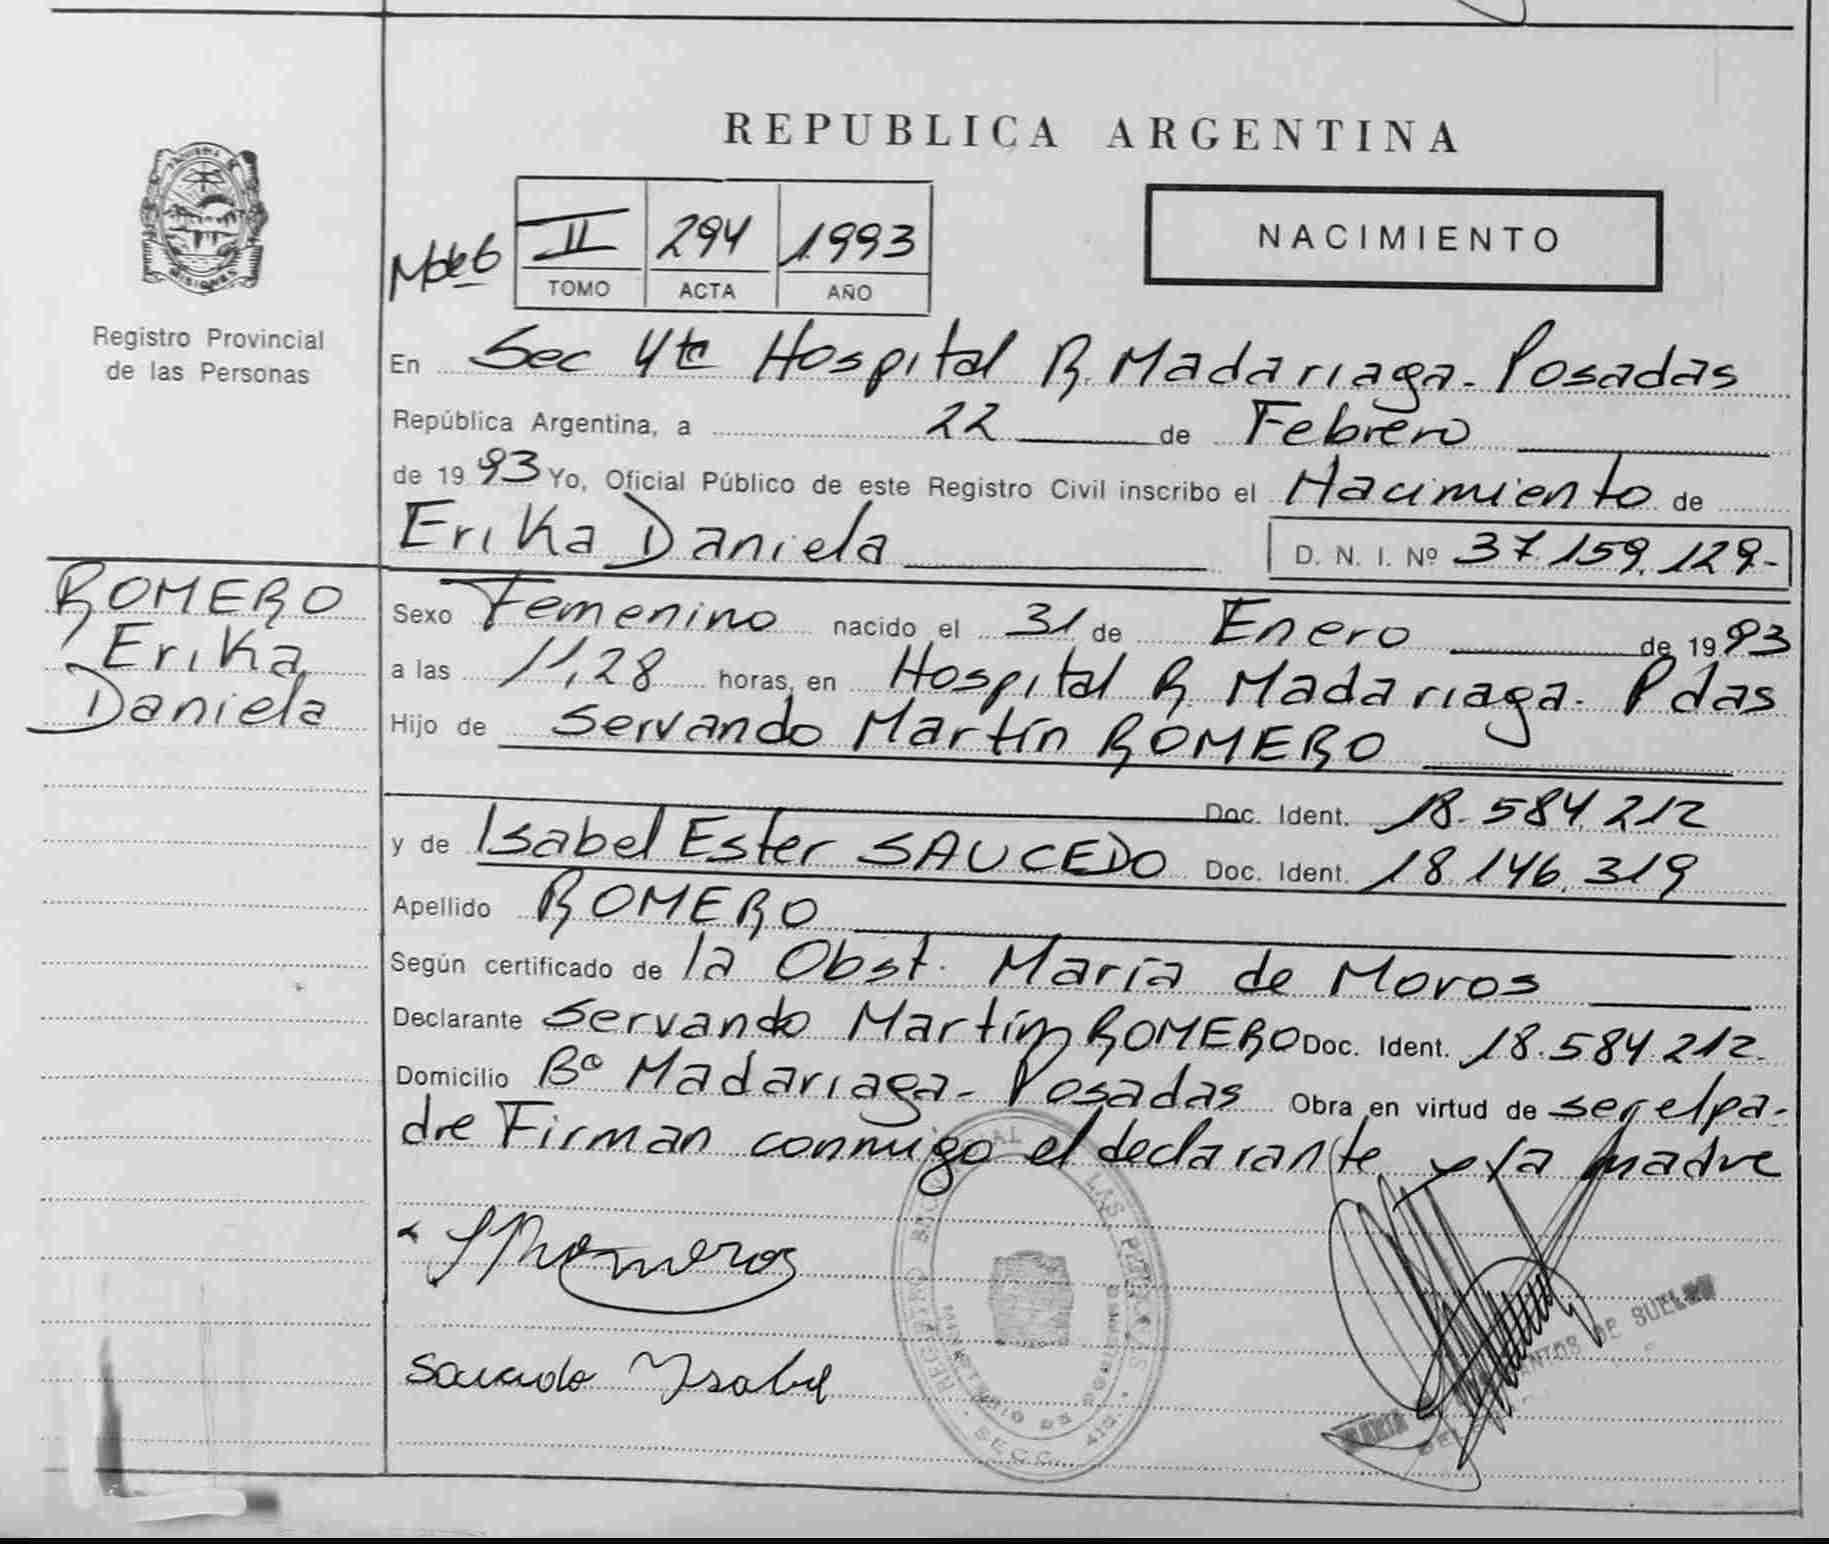 REPUBLICA ARGENTINA
NACIMIENTO
II 294 1993
TOMO ACTA AÑO
MISIONES
Registro Provincial
de las Personas
En Sec 4ta Hospital R. Madariaga - Posadas
República Argentina, a 22 de Febrero
de 1993 Yo, Oficial Público de este Registro Civil inscribo el Nacimiento de
Erika Daniela D. N. I. Nº 37.159.129.-
ROMERO
Erika
Daniela
Sexo Femenino nacido el 31 de Enero de 1993
a las 11,28 horas, en Hospital R Madariaga - Pdas
Hijo de Servando Martín ROMERO
Doc. Ident. 18.584.212
y de Isabel Ester SAUCEDO Doc. Ident. 18.146.319
Apellido ROMERO
Según certificado de la Obst. María de Moros
Declarante Servando Martín ROMERO Doc. Ident. 18.584.212.
Domicilio Bº Madariaga - Posadas Obra en virtud de ser el pa-
dre Firman conmigo el declarante y la madre
Saucedo Ysabel